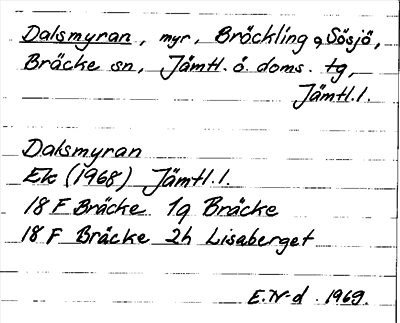 Dalsmyran, myr, Bräckling o Sösjö,
Bräcke sn, Jämtl. ö. doms. tg,
Jämtl. l.
Dalsmyran
Ek (1968) Jämtl. l.
18 F Bräcke 1g Bräcke
18 F Bräcke 2h Lisaberget
E. N-d. 1969.